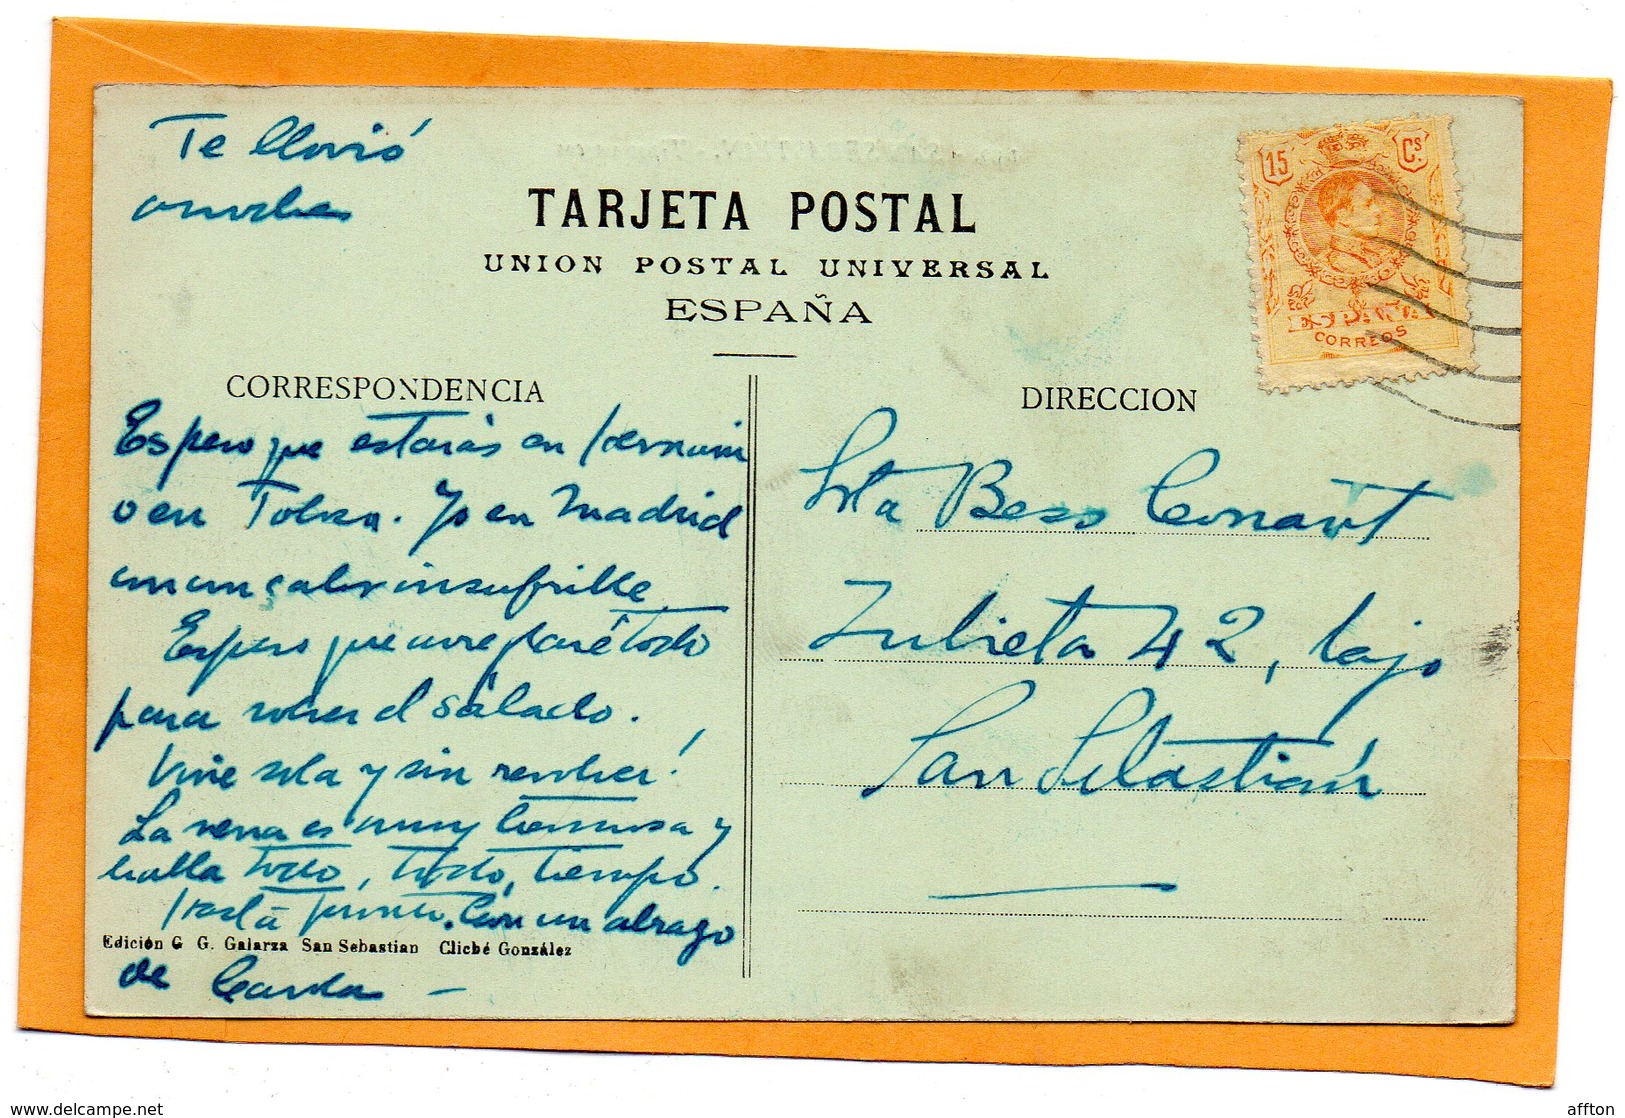 Te llovió
anoche
TARJETA POSTAL
UNION POSTAL UNIVERSAL
ESPAÑA
15 Cs
ESPAÑA
CORREOS
CORRESPONDENCIA
Espero que estarás en
o en Tolosa. Yo en Madrid
con un calor insufrible
Espero que arreglaré todo
para volver el sábado.
Vine sola y sin revolver!
La vena es muy hermosa y
habla todo, todo, tiempo.
Hasta pronto. Con un abrazo
de
Edición G. G. Galarza San Sebastian Cliché González
DIRECCION
Srta Bess Conant
Zubieta 42, bajo
San Sebastián
affton
delcampe.net